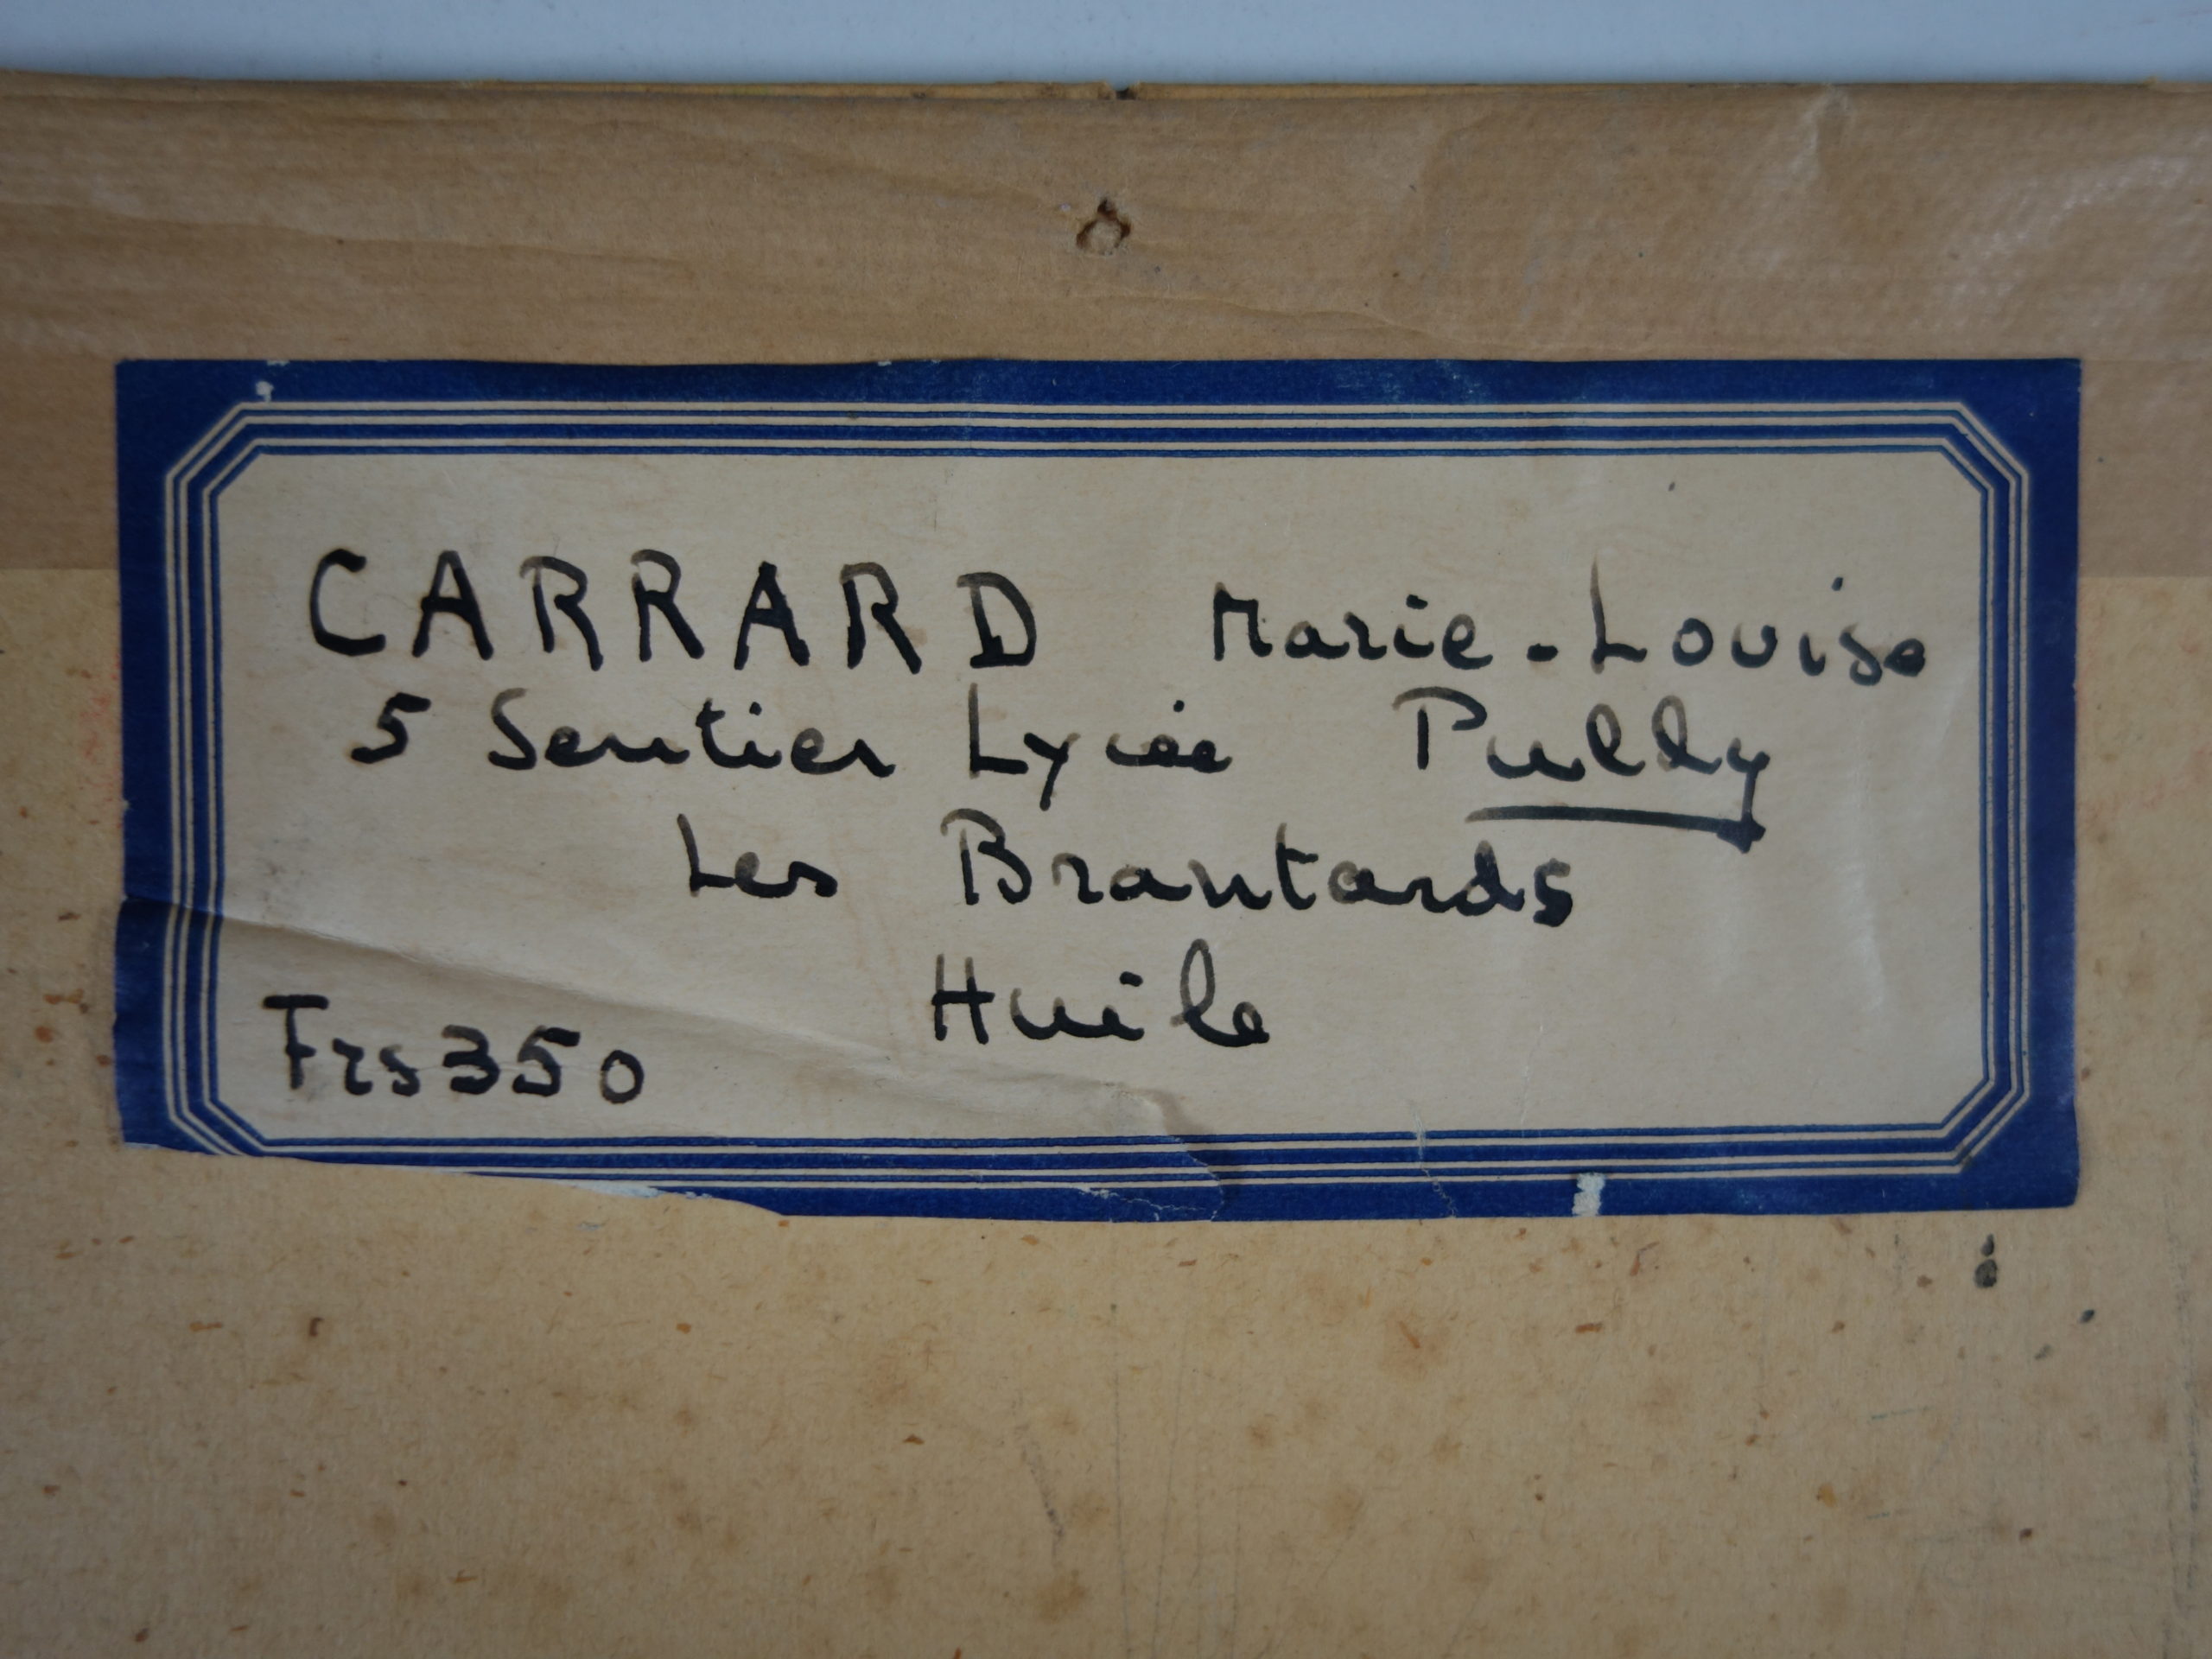 CARRARD Marie-Louise
5 Sentier Lycée Pully
Les Brantards
Huile
Frs 350